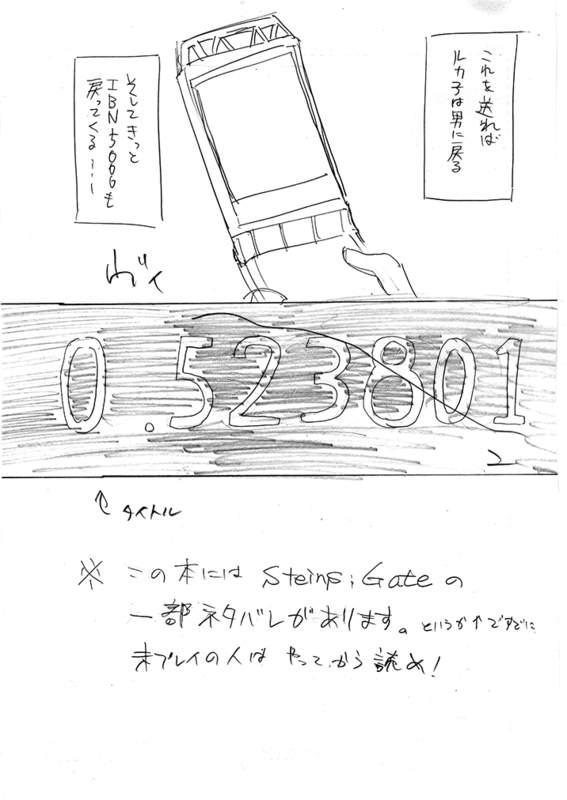 これを送れば
ルカ子は男に戻る
そしてきっと
IBN5000も
戻ってくる……
ヴィ
0.523801
↑タイトル
※ この本には Steins;Gateの
一部ネタバレがあります。というか↑ですでに
未プレイの人は やってから読め!